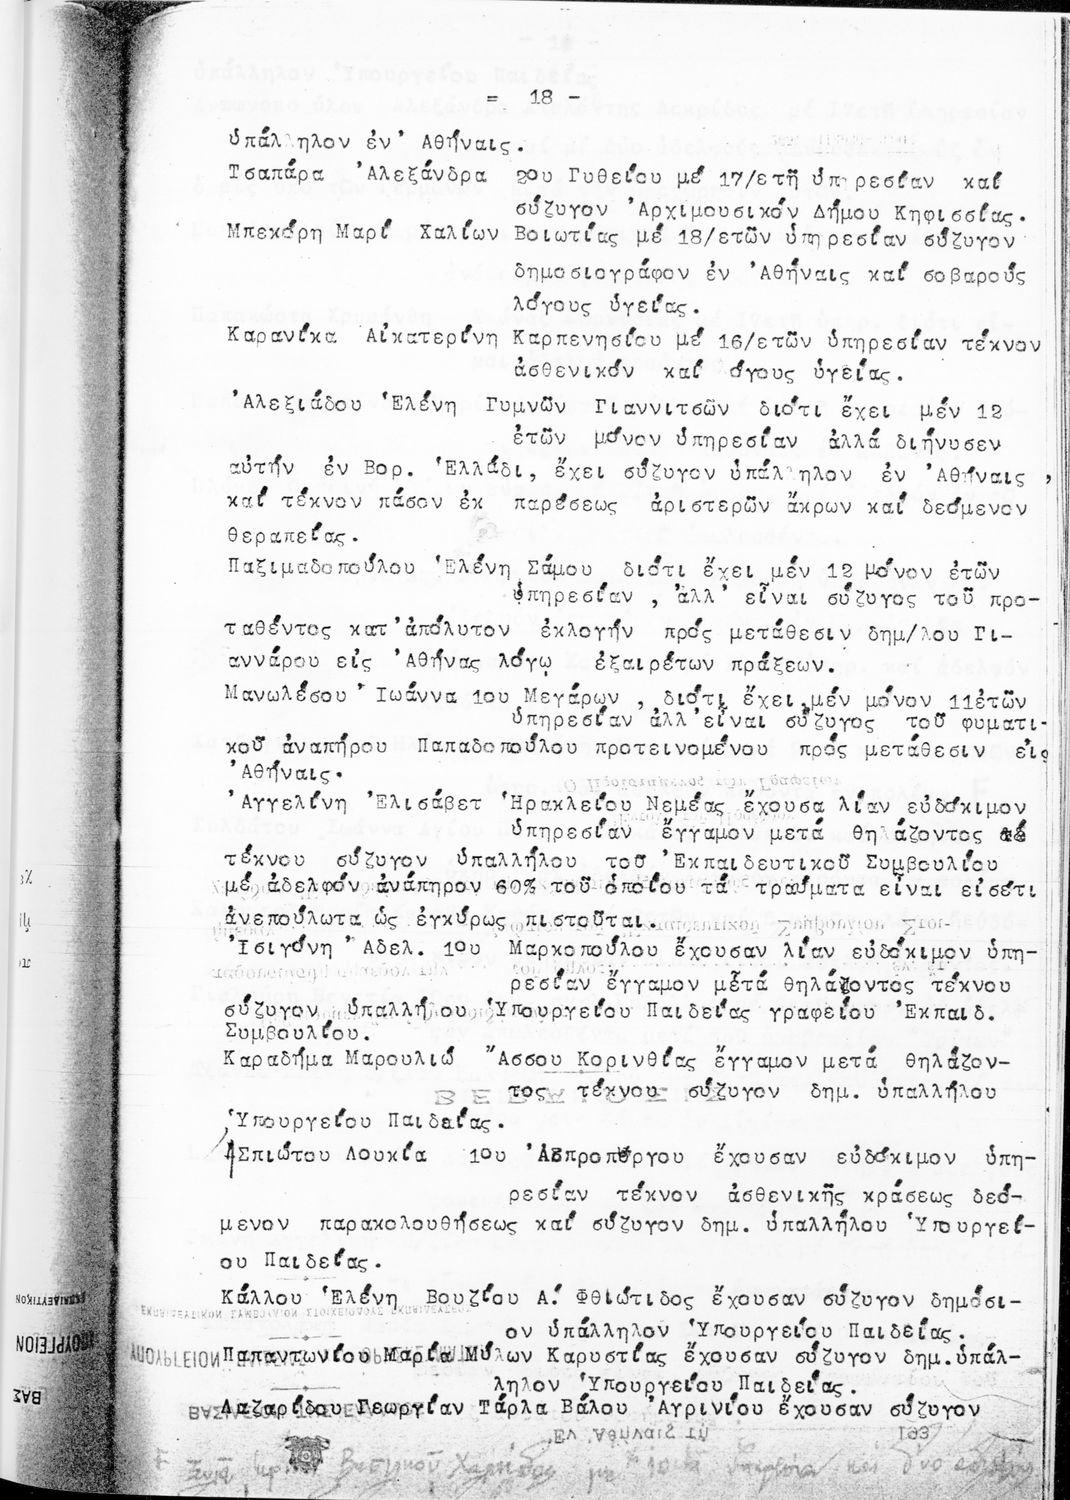 = 18 -
ὑπάλληλον ἐν' Ἀθήναις.
Τσαπάρα Ἀλεξάνδρα 2ου Γυθείου μέ 17/ετῆ ὑπηρεσίαν καί
σύζυγον Ἀρχιμουσικόν Δήμου Κηφισσίας.
Μπεκόρη Μαρί Χαλίων Βοιωτίας μέ 18/ετῶν ὑπηρεσίαν σύζυγον
δημοσιογράφον ἐν Ἀθήναις καί σοβαρούς
λόγους ὑγείας.
Καρανίκα Αἰκατερίνη Καρπενησίου μέ 16/ετῶν ὑπηρεσίαν τέκνον
ἀσθενικόν καί όγους ὑγείας.
Ἀλεξιάδου Ἑλένη Γυμνῶν Γιαννιτσῶν διότι ἔχει μέν 12
ἐτῶν μόνον ὑπηρεσίαν ἀλλά διήνυσεν
αὐτήν ἐν Βορ. Ἑλλάδι, ἔχει σύζυγον ὑπάλληλον ἐν Ἀθήναις,
καί τέκνον πάσον ἐκ παρέσεως ἀριστερῶν ἄκρων καί δεόμενον
θεραπείας.
Παξιμαδοπούλου Ἑλένη Σάμου διότι ἔχει μέν 12 μόνον ἐτῶν
ὑπηρεσίαν, ἀλλ' εἶναι σύζυγος τοῦ προ-
ταθέντος κατ' ἀπόλυτον ἐκλογήν πρός μετάθεσιν δημ/λου Γι-
αννάρου εἰς Ἀθήνας λόγῳ ἐξαιρέτων πράξεων.
Μανωλέσου Ἰωάννα 1ου Μεγάρων, διότι ἔχει μέν μόνον 11ἐτῶν
ὑπηρεσίαν ἀλλ'εἶναι σύζυγος τοῦ φυματι-
κοῦ ἀναπήρου Παπαδοπούλου προτεινομένου πρός μετάθεσιν εἰς
Ἀθήναις.
Ἀγγελίνη Ἐλισάβετ Ἡρακλείου Νεμέας ἔχουσα λίαν εὐδόκιμον
ὑπηρεσίαν ἔγγαμον μετά θηλάζοντος
τέκνου σύζυγον ὑπαλλήλου τοῦ Ἐκπαιδευτικοῦ Συμβουλίου
μέ ἀδελφόν ἀνάπηρον 60% τοῦ ὁποίου τά τραύματα εἶναι εἰσέτι
ἀνεπούλωτα ὡς ἐγκύρως πιστοῦται.
Ἰσιγόνη Ἀδελ. 1ου Μαρκοπούλου ἔχουσαν λίαν εὐδόκιμον ὑπη-
ρεσίαν ἔγγαμον μετά θηλάζοντος τέκνου
σύζυγον ὑπαλλήλου Ὑπουργείου Παιδείας γραφείου Ἐκπαιδ.
Συμβουλίου.
Καραδήμα Μαρουλιώ Ἄσσου Κορινθίας ἔγγαμον μετά θηλάζον-
τος τέκνου σύζυγον δημ. ὑπαλλήλου
Ὑπουργείου Παιδείας.
Σπιώτου Λουκία 1ου Ἀσπροπύργου ἔχουσαν εὐδόκιμον ὑπη-
ρεσίαν τέκνον ἀσθενικῆς κράσεως δεό-
μενον παρακολουθήσεως καί σύζυγον δημ. ὑπαλλήλου Ὑπουργεί-
ου Παιδείας.
Κάλλου Ἑλένη Βουζίου Α. Φθιώτιδος ἔχουσαν σύζυγον δημόσι-
ον ὑπάλληλον Ὑπουργείου Παιδείας.
Παπαντωνίου Μαρία Μύλων Καρυστίας ἔχουσαν σύζυγον δημ.ὑπάλ-
ληλον Ὑπουργείου Παιδείας.
Λαζαρίδου Γεωργίαν Τάρλα Βάλου Ἀγρινίου ἔχουσαν σύζυγον